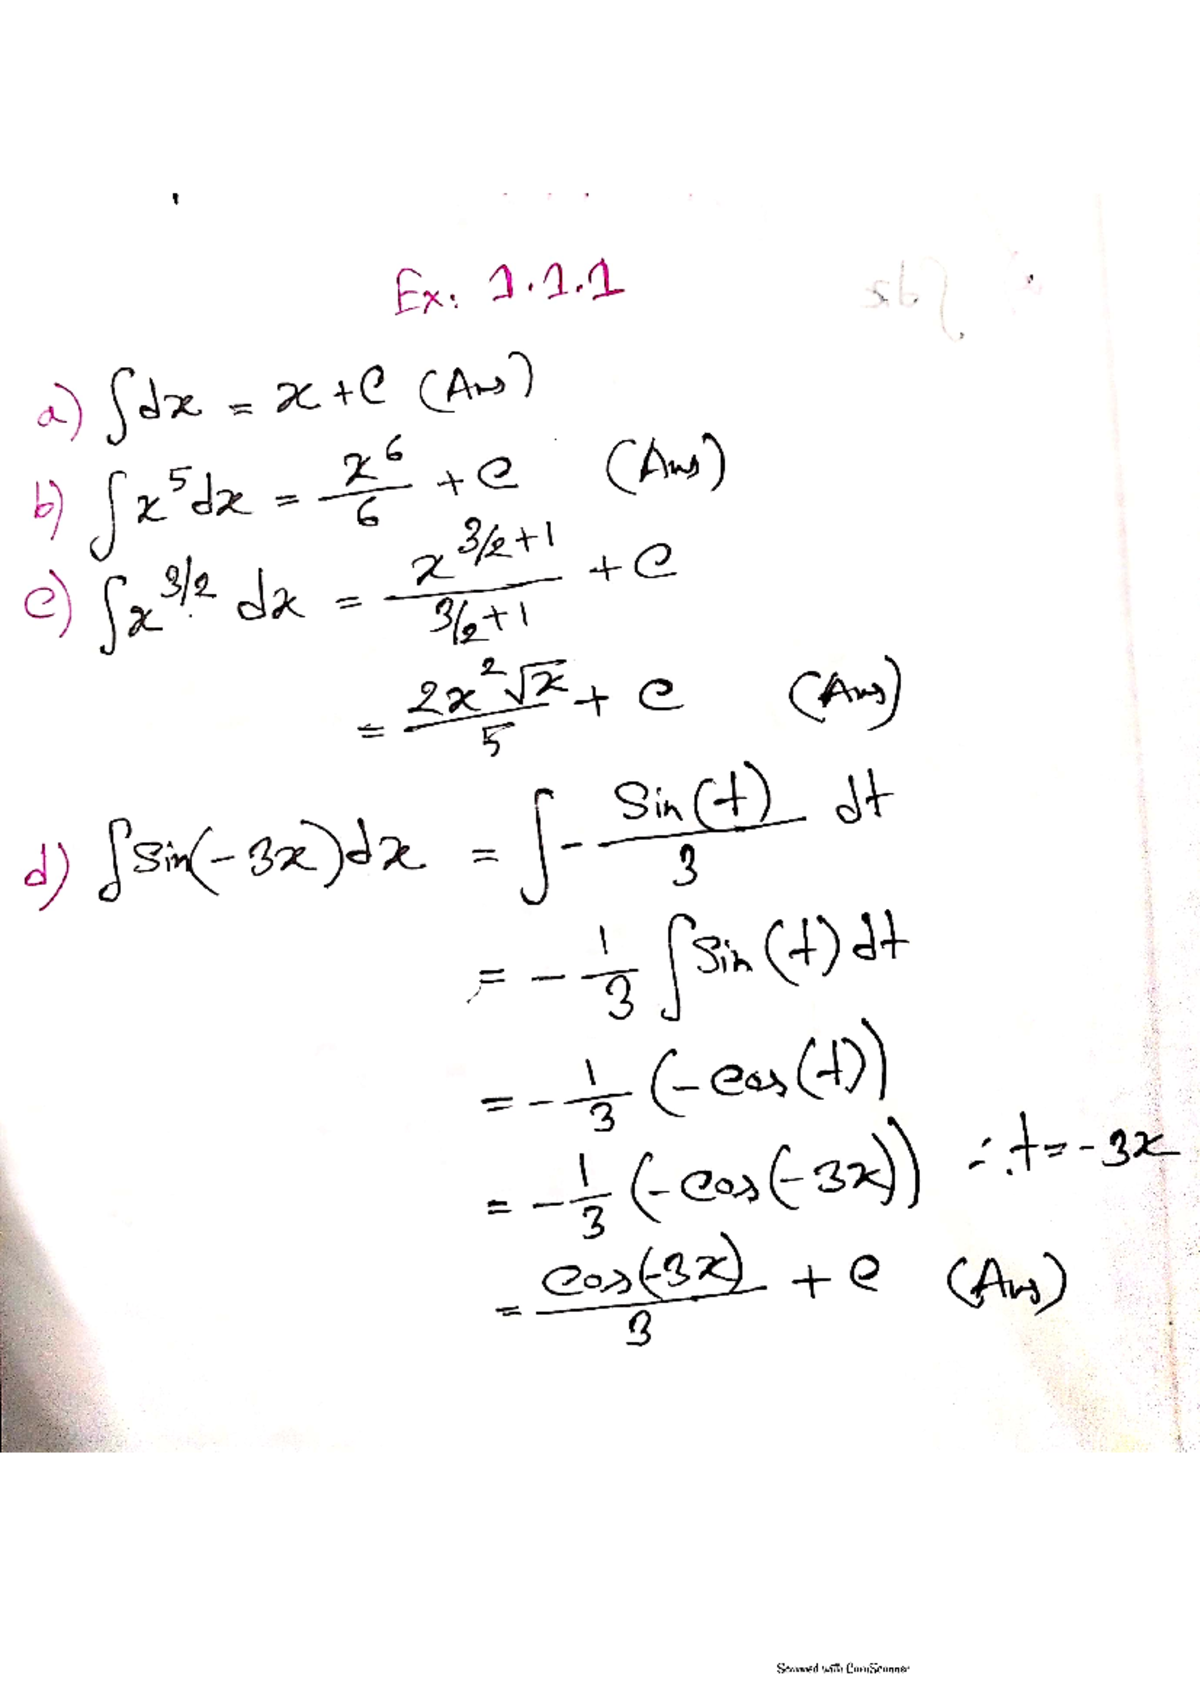 Ex: 1.1.1
a) ∫dx = x + c (Ans)
b) ∫x⁵dx = x⁶/6 + c (Ans)
c) ∫x^(3/2) dx = x^(3/2+1)/(3/2+1) + c
= 2x²√x/5 + c (Ans)
d) ∫sin(-3x)dx = ∫- Sin(t)/3 dt
= -1/3 ∫Sin(t)dt
= -1/3 (-cos(t))
= -1/3 (-cos(-3x)) ∴ t = -3x
= cos(-3x)/3 + c (Ans)
Scanned with CamScanner